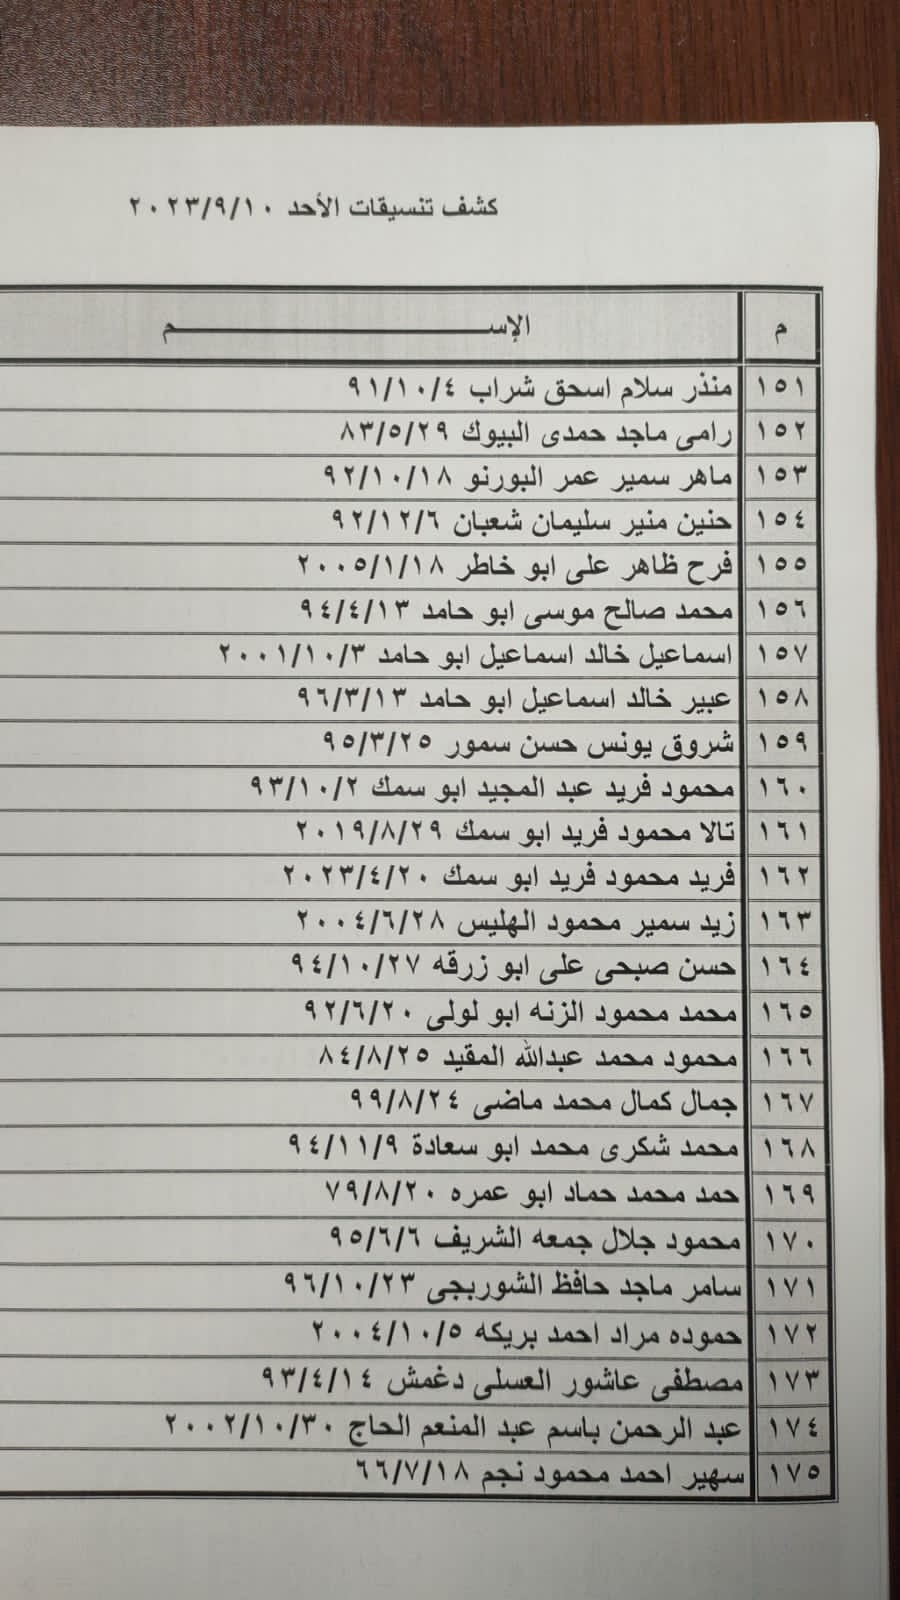 كشف تنسيقات الأحد ٢٠٢٣/٩/١٠
م الإســـــــــم
١٥١ منذر سلام اسحق شراب ٩١/١٠/٤
١٥٢ رامى ماجد حمدى البيوك ٨٣/٥/٢٩
١٥٣ ماهر سمير عمر البورنو ٩٢/١٠/١٨
١٥٤ حنين منير سليمان شعبان ٩٢/١٢/٦
١٥٥ فرح ظاهر على ابو خاطر ٢٠٠٥/١/١٨
١٥٦ محمد صالح موسى ابو حامد ٩٤/٤/١٣
١٥٧ اسماعيل خالد اسماعيل ابو حامد ٢٠٠١/١٠/٣
١٥٨ عبير خالد اسماعيل ابو حامد ٩٦/٣/١٣
١٥٩ شروق يونس حسن سمور ٩٥/٣/٢٥
١٦٠ محمود فريد عبد المجيد ابو سمك ٩٣/١٠/٢
١٦١ تالا محمود فريد ابو سمك ٢٠١٩/٨/٢٩
١٦٢ فريد محمود فريد ابو سمك ٢٠٢٣/٤/٢٠
١٦٣ زيد سمير محمود الهليس ٢٠٠٤/٦/٢٨
١٦٤ حسن صبحى على ابو زرقه ٩٤/١٠/٢٧
١٦٥ محمد محمود الزنه ابو لولى ٩٢/٦/٢٠
١٦٦ محمود محمد عبدالله المقيد ٨٤/٨/٢٥
١٦٧ جمال كمال محمد ماضى ٩٩/٨/٢٤
١٦٨ محمد شكرى محمد ابو سعادة ٩٤/١١/٩
١٦٩ حمد محمد حماد ابو عمره ٧٩/٨/٢٠
١٧٠ محمود جلال جمعه الشريف ٩٥/٦/٦
١٧١ سامر ماجد حافظ الشوربجى ٩٦/١٠/٢٣
١٧٢ حموده مراد احمد بريكه ٢٠٠٤/١٠/٥
١٧٣ مصطفى عاشور العسلى دغمش ٩٣/٤/١٤
١٧٤ عبد الرحمن باسم عبد المنعم الحاج ٢٠٠٢/١٠/٣٠
١٧٥ سهير احمد محمود نجم ٦٦/٧/١٨